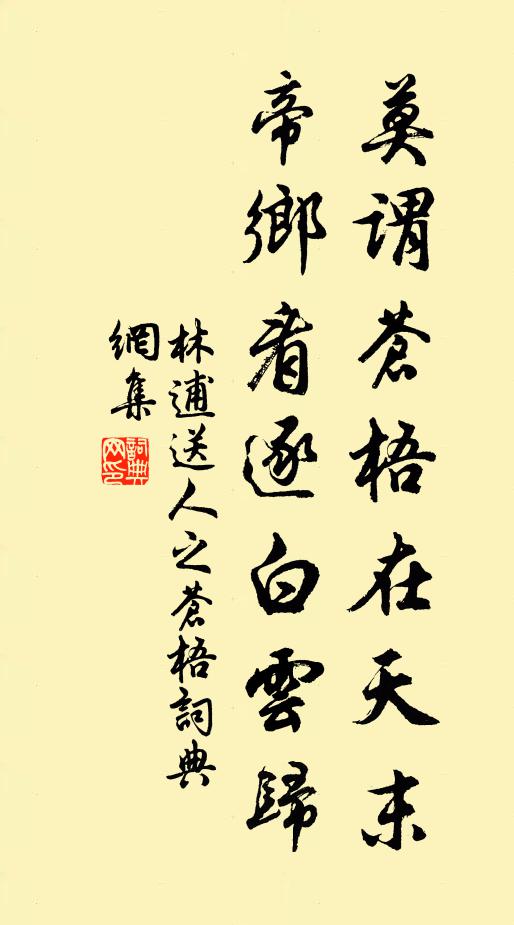 莫謂蒼梧在天末
帝鄉看逐白雲歸
林逋送人之蒼梧詞典
網集
詞典网印